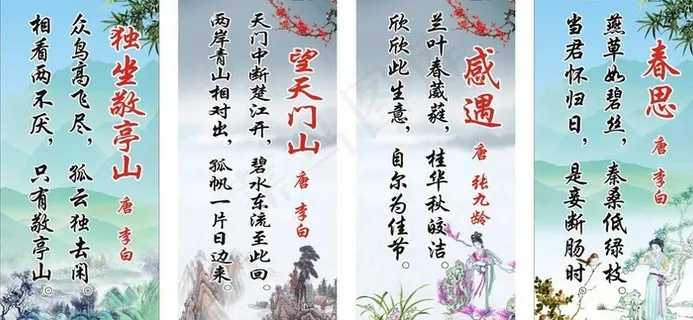 独坐敬亭山
唐 李白
众鸟高飞尽，孤云独去闲。
相看两不厌，只有敬亭山。
望天门山
唐 李白
天门中断楚江开，碧水东流至此回。
两岸青山相对出，孤帆一片日边来。
感遇
唐 张九龄
兰叶春葳蕤，桂华秋皎洁。
欣欣此生意，自尔为佳节。
春思
唐 李白
燕草如碧丝，秦桑低绿枝。
当君怀归日，是妾断肠时